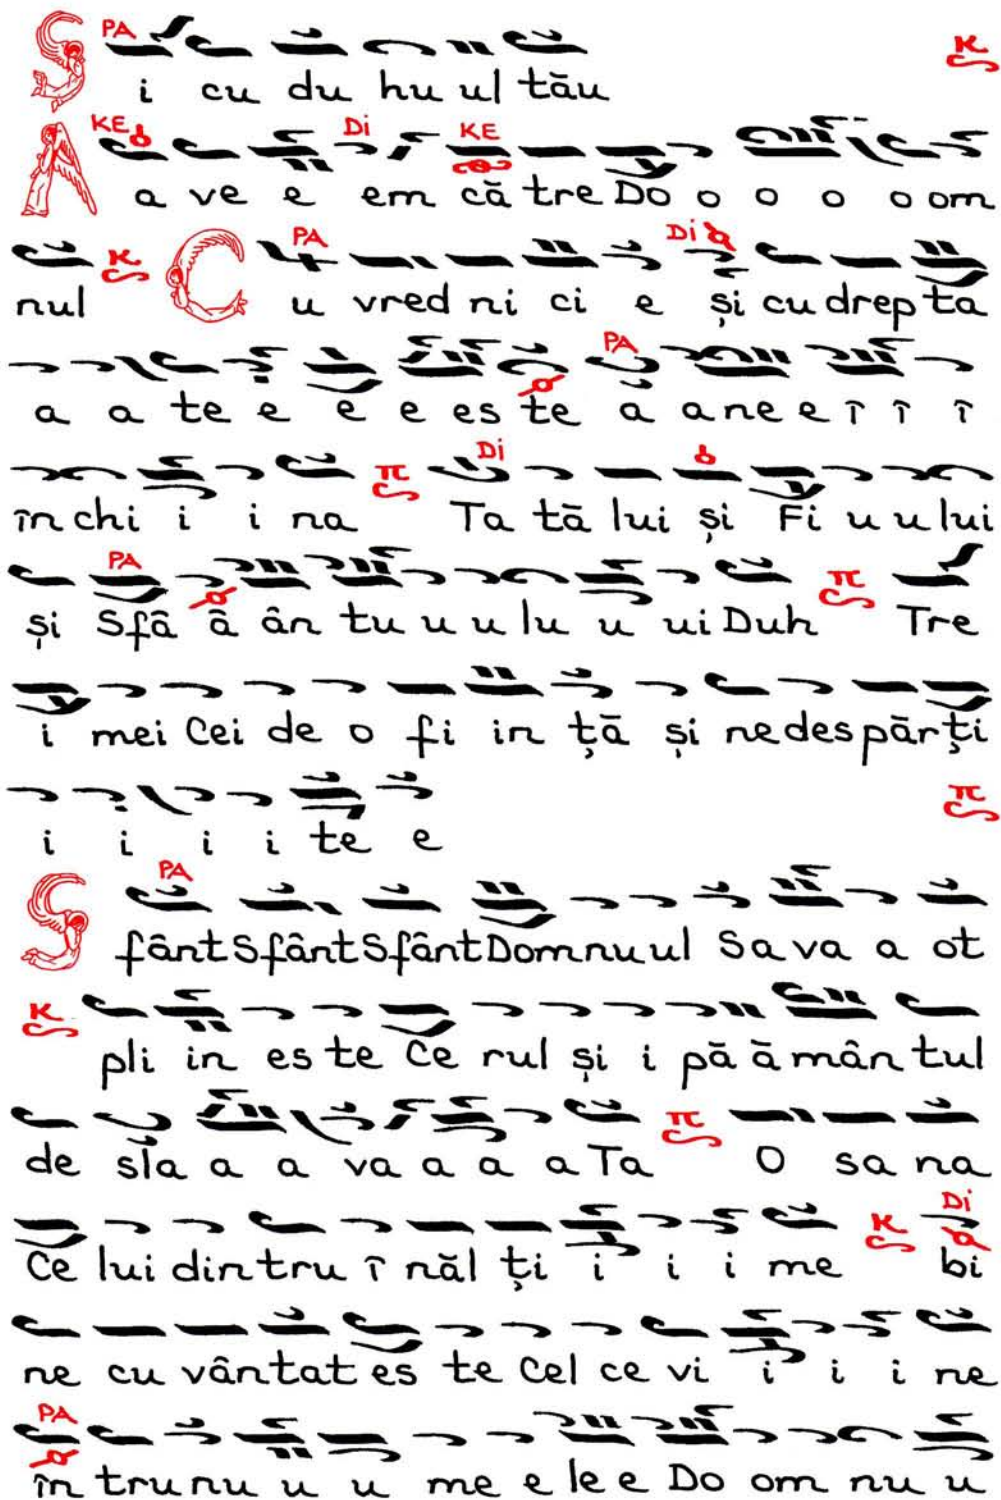 PA
Și cu du hu ul tău
KE Di KE
A a ve e em că tre Do o o o o om
PA Di
nul Cu vred ni ci e și cu drep ta
PA
a a te e e e es te a a ne e î î î
Di
în chi i i na Ta tă lui și Fi u u lui
PA
și Sfâ â ân tu u u lu u ui Duh Tre
i mei Cei de o fi in ță și nedespărți
i i i i te e
PA
Sfânt Sfânt Sfânt Domnuul Sava a ot
pli in es te Ce rul și i pă ă mân tul
de sla a a va a a a Ta O sa na
Di
Ce lui dintru î năl ți i i i me bi
ne cu vântat es te Cel ce vi i i i ne
PA
în tru nu u u me e le e Do om nu u